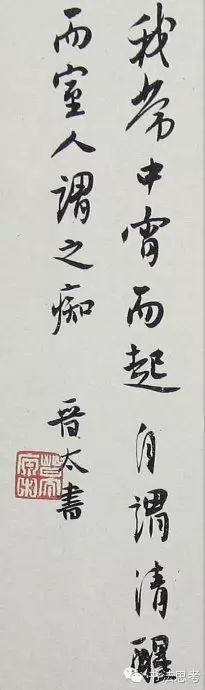 我常中宵而起自谓清醒
而室人谓之痴
晋太书
书法思考